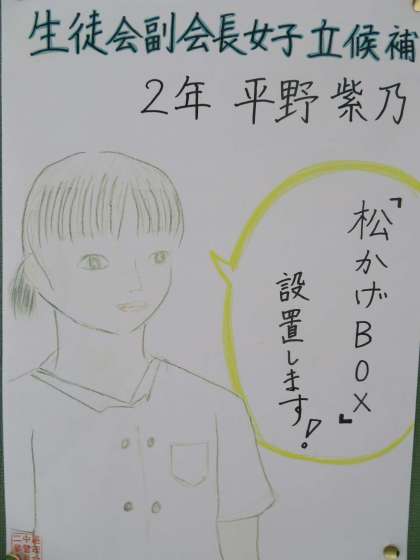 生徒会副会長女子立候補
2年 平野 紫乃
「松かげBOX」
設置します!